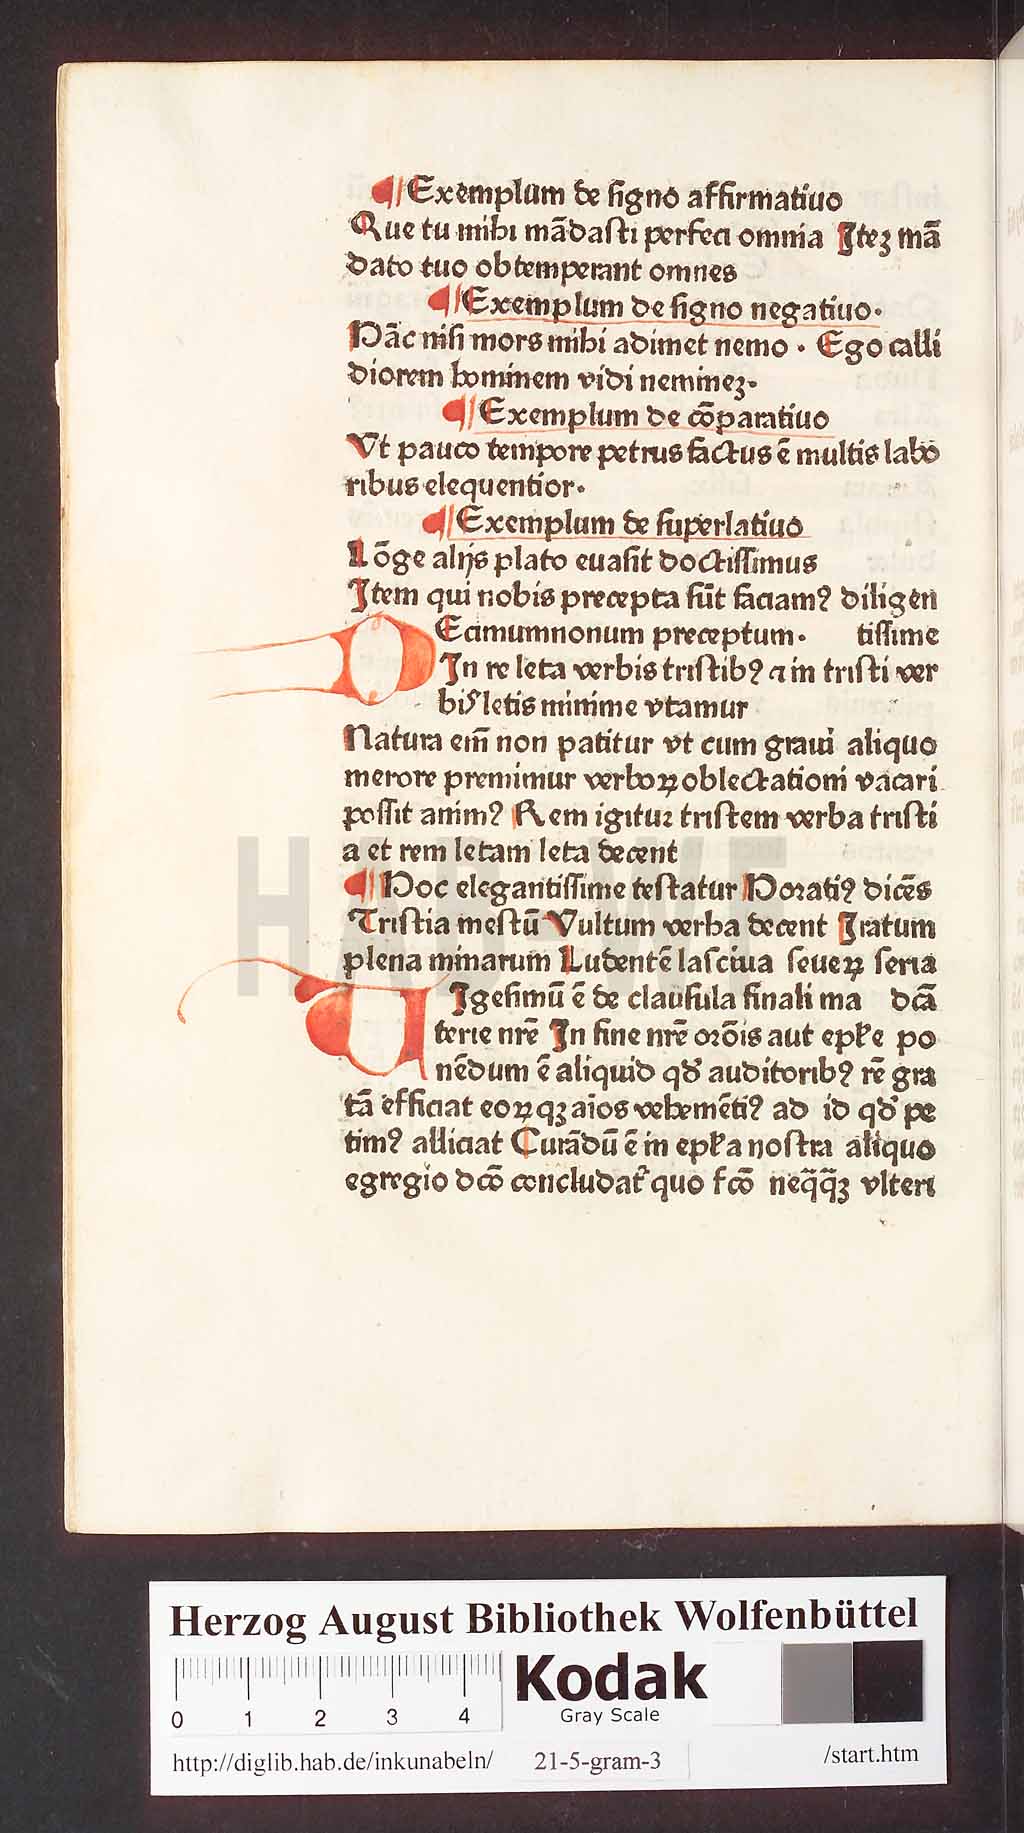 ¶ Exemplum de signo affirmatiuo
Que tu mihi mādasti perfeci omnia Iteꝫ mā
dato tuo obtemperant omnes
¶ Exemplum de signo negatiuo.
Hāc nisi mors mihi adimet nemo . Ego calli
diorem hominem vidi nemineꝫ.
¶ Exemplum de cōparatiuo
Vt pauco tempore petrus factus ē multis labo
ribus elequentior.
¶ Exemplum de superlatiuo
Lōge alijs plato euasit doctissimus
Item qui nobis precepta sūt faciamꝰ diligen
Ecimumnonum preceptum. tissime
In re leta verbis tristibꝰ ⁊ in tristi ver
bis letis minime vtamur
Natura em̄ non patitur vt cum graui aliquo
merore premimur verboꝝ oblectationi vacari
possit animꝰ Rem igitur tristem verba tristi
a et rem letam leta decent
¶ Hoc elegantissime testatur Horatiꝰ dicēs
Tristia mestū Vultum verba decent Iratum
plena minarum Ludentē lasciua seueꝝ seria
Igesimū ē de clausula finali ma dcā
terie nrē In fine nrē orōis aut epłe po
nēdum ē aliquid qď auditoribꝰ rē gra
tā efficiat eoꝝqꝫ aīos vehemētiꝰ ad id qď pe
timꝰ alliciat Curādū ē in epła nostra aliquo
egregio dcō concludat᷑ quo fcō neq̄q̄ꝫ vlteri
HAB-WF
Herzog August Bibliothek Wolfenbüttel
Kodak
Gray Scale
0 1 2 3 4
http://diglib.hab.de/inkunabeln/ 21-5-gram-3 /start.htm